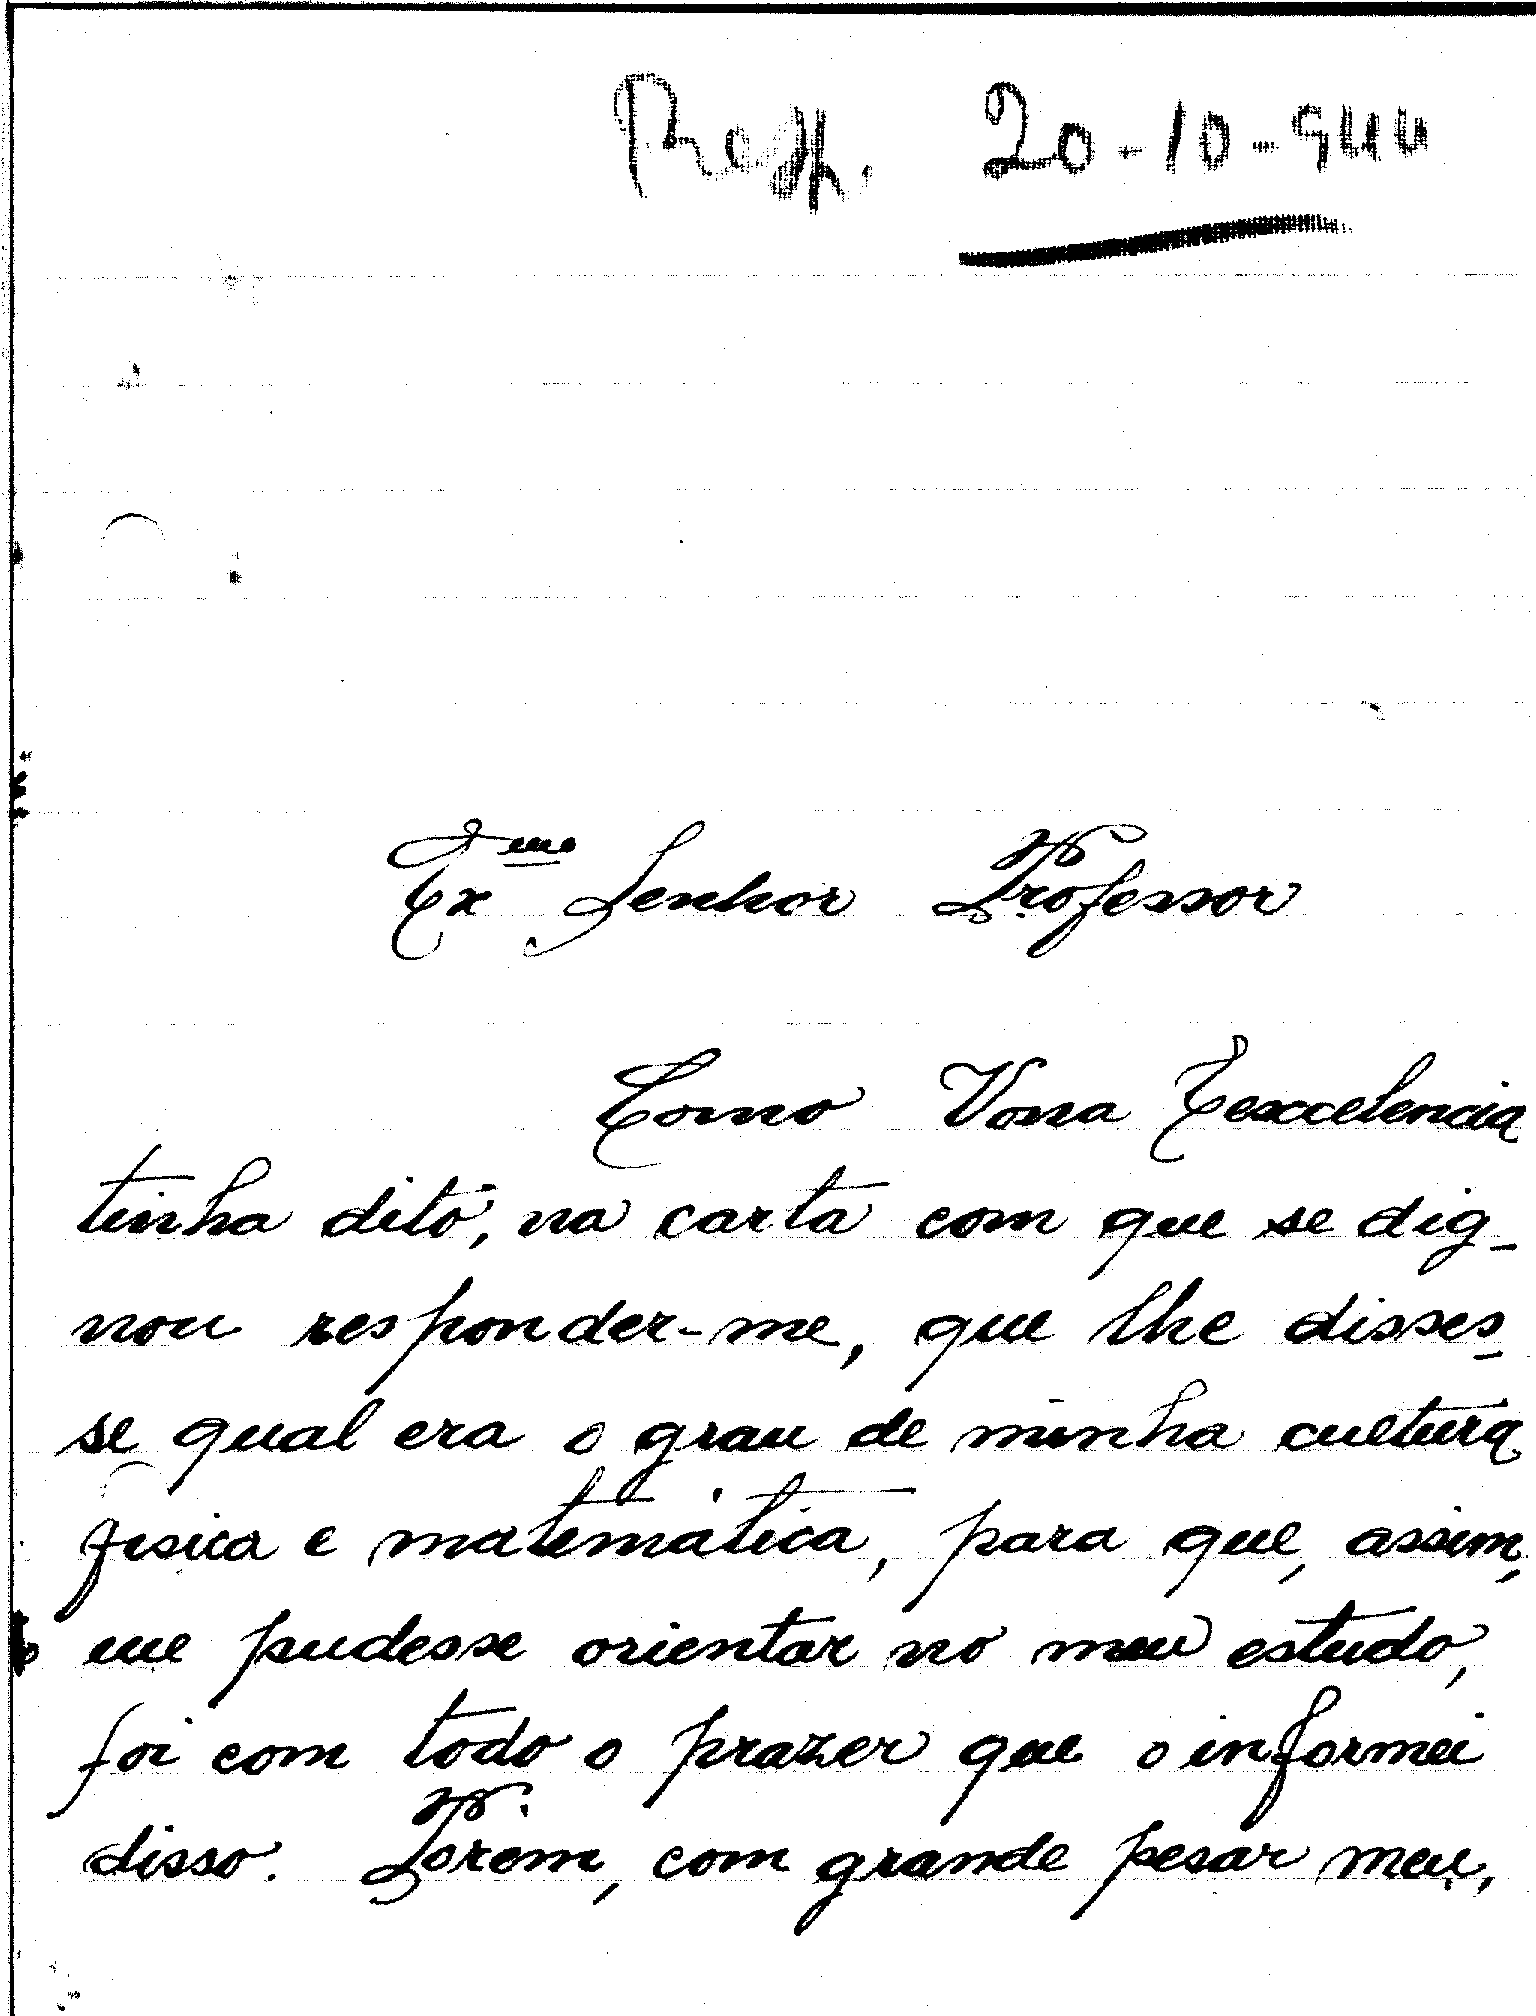 Resp. 20-10-944
Exmo Senhor Professor
Como Vossa Eexcelencia
tinha dito, na carta com que se dig-
nou responder-me, que lhe disses-
se qual era o grau de minha cultura
fisica e matemática, para que, assim,
me pudesse orientar no meu estudo,
foi com todo o prazer que o informei
disso. Porém, com grande pesar meu,